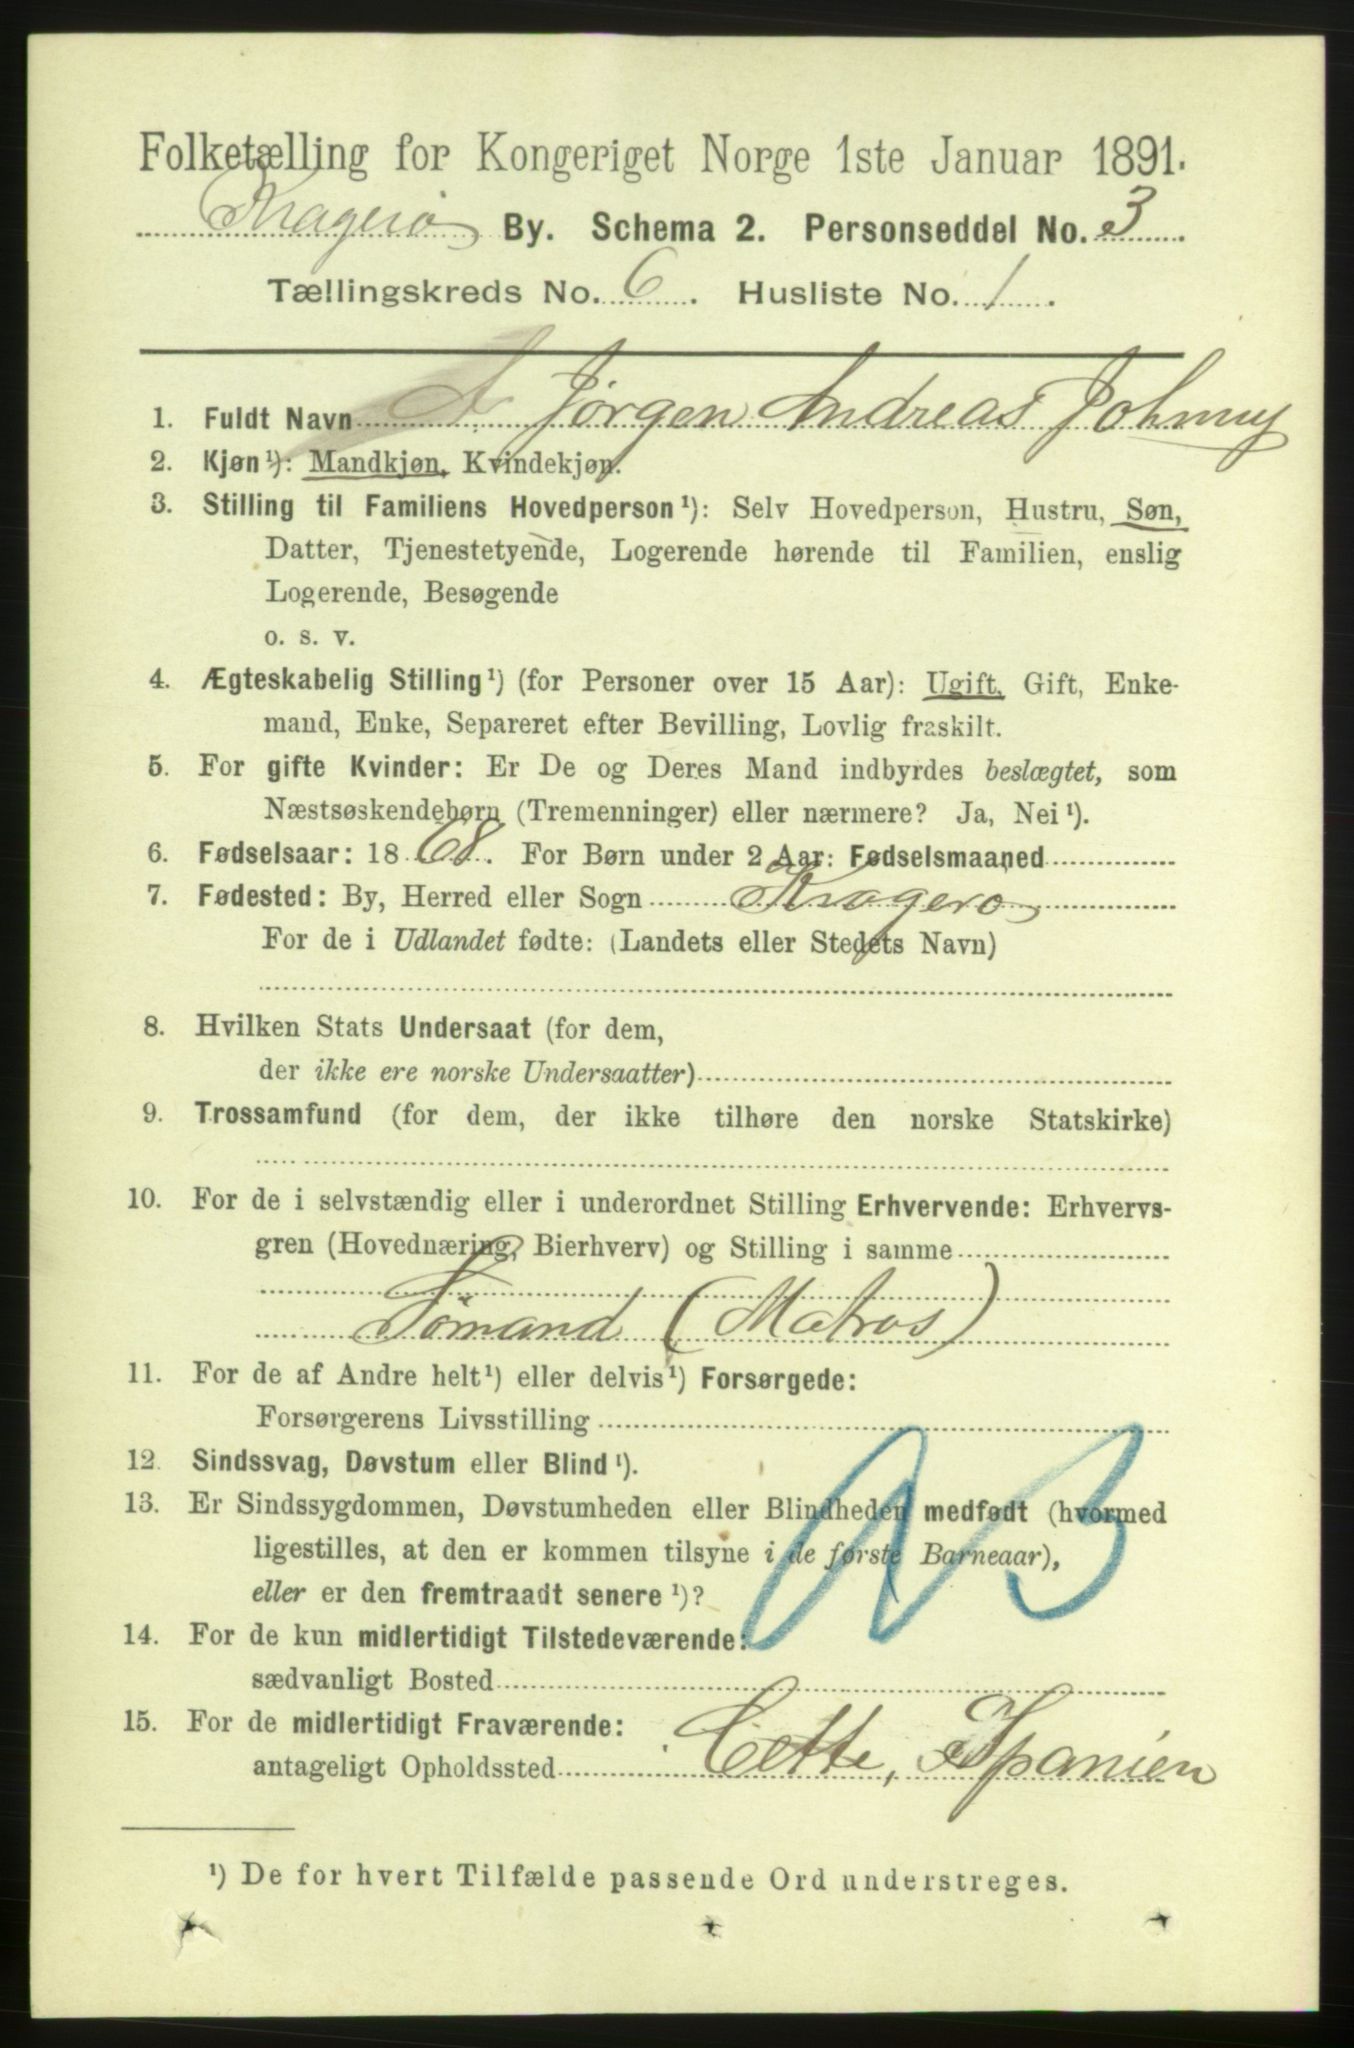 Folketælling for Kongeriget Norge 1ste Januar 1891.
Kragerø By. Schema 2. Personseddel No. 3
Tællingskreds No. 6. Husliste No. 1.
1. Fuldt Navn Jørgen Andreas Johnny
2. Kjøn¹): Mandkjøn, Kvindekjøn.
3. Stilling til Familiens Hovedperson¹): Selv Hovedperson, Hustru, Søn,
Datter, Tjenestetyende, Logerende hørende til Familien, enslig
Logerende, Besøgende
o. s. v.
4. Ægteskabelig Stilling¹) (for Personer over 15 Aar): Ugift, Gift, Enke-
mand, Enke, Separeret efter Bevilling, Lovlig fraskilt.
5. For gifte Kvinder: Er De og Deres Mand indbyrdes beslægtet, som
Næstsøskendebørn (Tremenninger) eller nærmere? Ja, Nei¹).
6. Fødselsaar: 1868. For Børn under 2 Aar: Fødselsmaaned
7. Fødested: By, Herred eller Sogn Kragerø
For de i Udlandet fødte: (Landets eller Stedets Navn)
8. Hvilken Stats Undersaat (for dem,
der ikke ere norske Undersaatter)
9. Trossamfund (for dem, der ikke tilhøre den norske Statskirke)
10. For de i selvstændig eller i underordnet Stilling Erhvervende: Erhvervs-
gren (Hovednæring, Bierhverv) og Stilling i samme
Sømand (Matros)
11. For de af Andre helt¹) eller delvis¹) Forsørgede:
Forsørgerens Livsstilling
12. Sindssvag, Døvstum eller Blind¹).
13. Er Sindssygdommen, Døvstumheden eller Blindheden medfødt (hvormed
ligestilles, at den er kommen tilsyne i de første Barneaar),
eller er den fremtraadt senere¹)?
14. For de kun midlertidigt Tilstedeværende:
sædvanligt Bosted
15. For de midlertidigt Fraværende:
antageligt Opholdssted Cette, Spanien
¹) De for hvert Tilfælde passende Ord understreges.